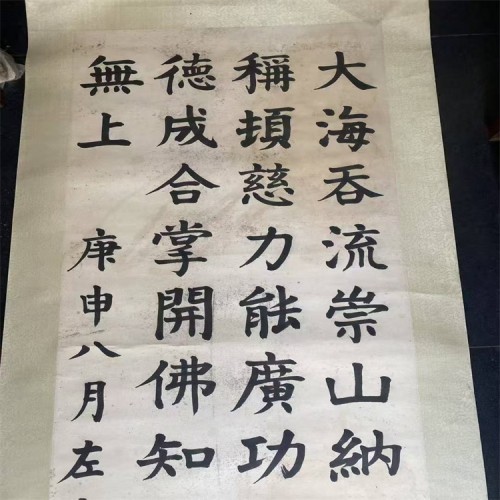 大海吞流崇山納
稱頊慈力能廣功
德成合掌開佛知
無上
庚申八月左